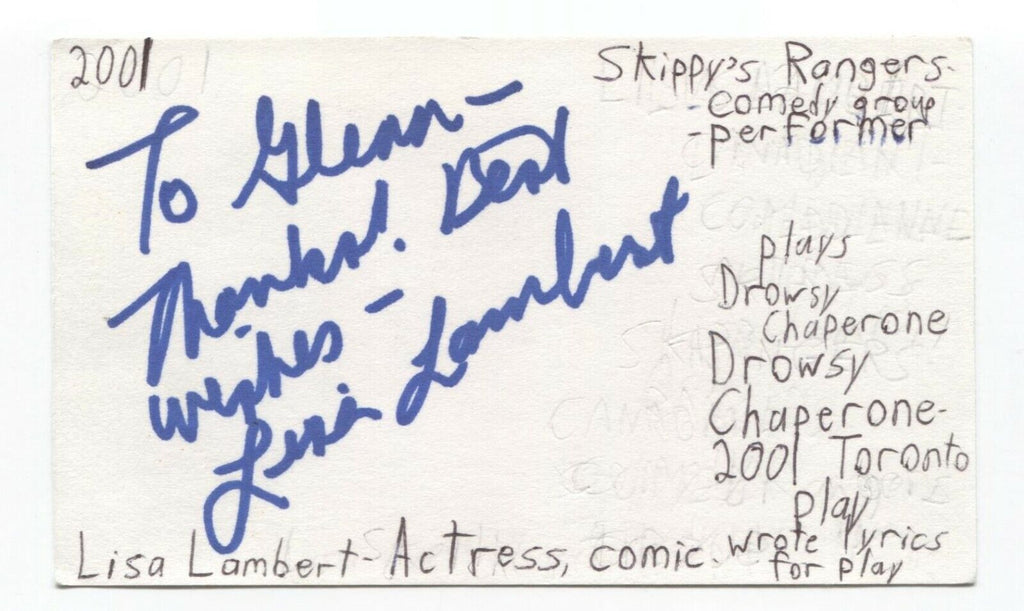 2001
To Glenn-
Thanks! Best
wishes-
Lisa Lambert
Skippy's Rangers-
-comedy group
-performer
plays
Drowsy
Chaperone
Drowsy
Chaperone-
2001 Toronto
play
wrote lyrics
for play
Lisa Lambert-Actress, comic.